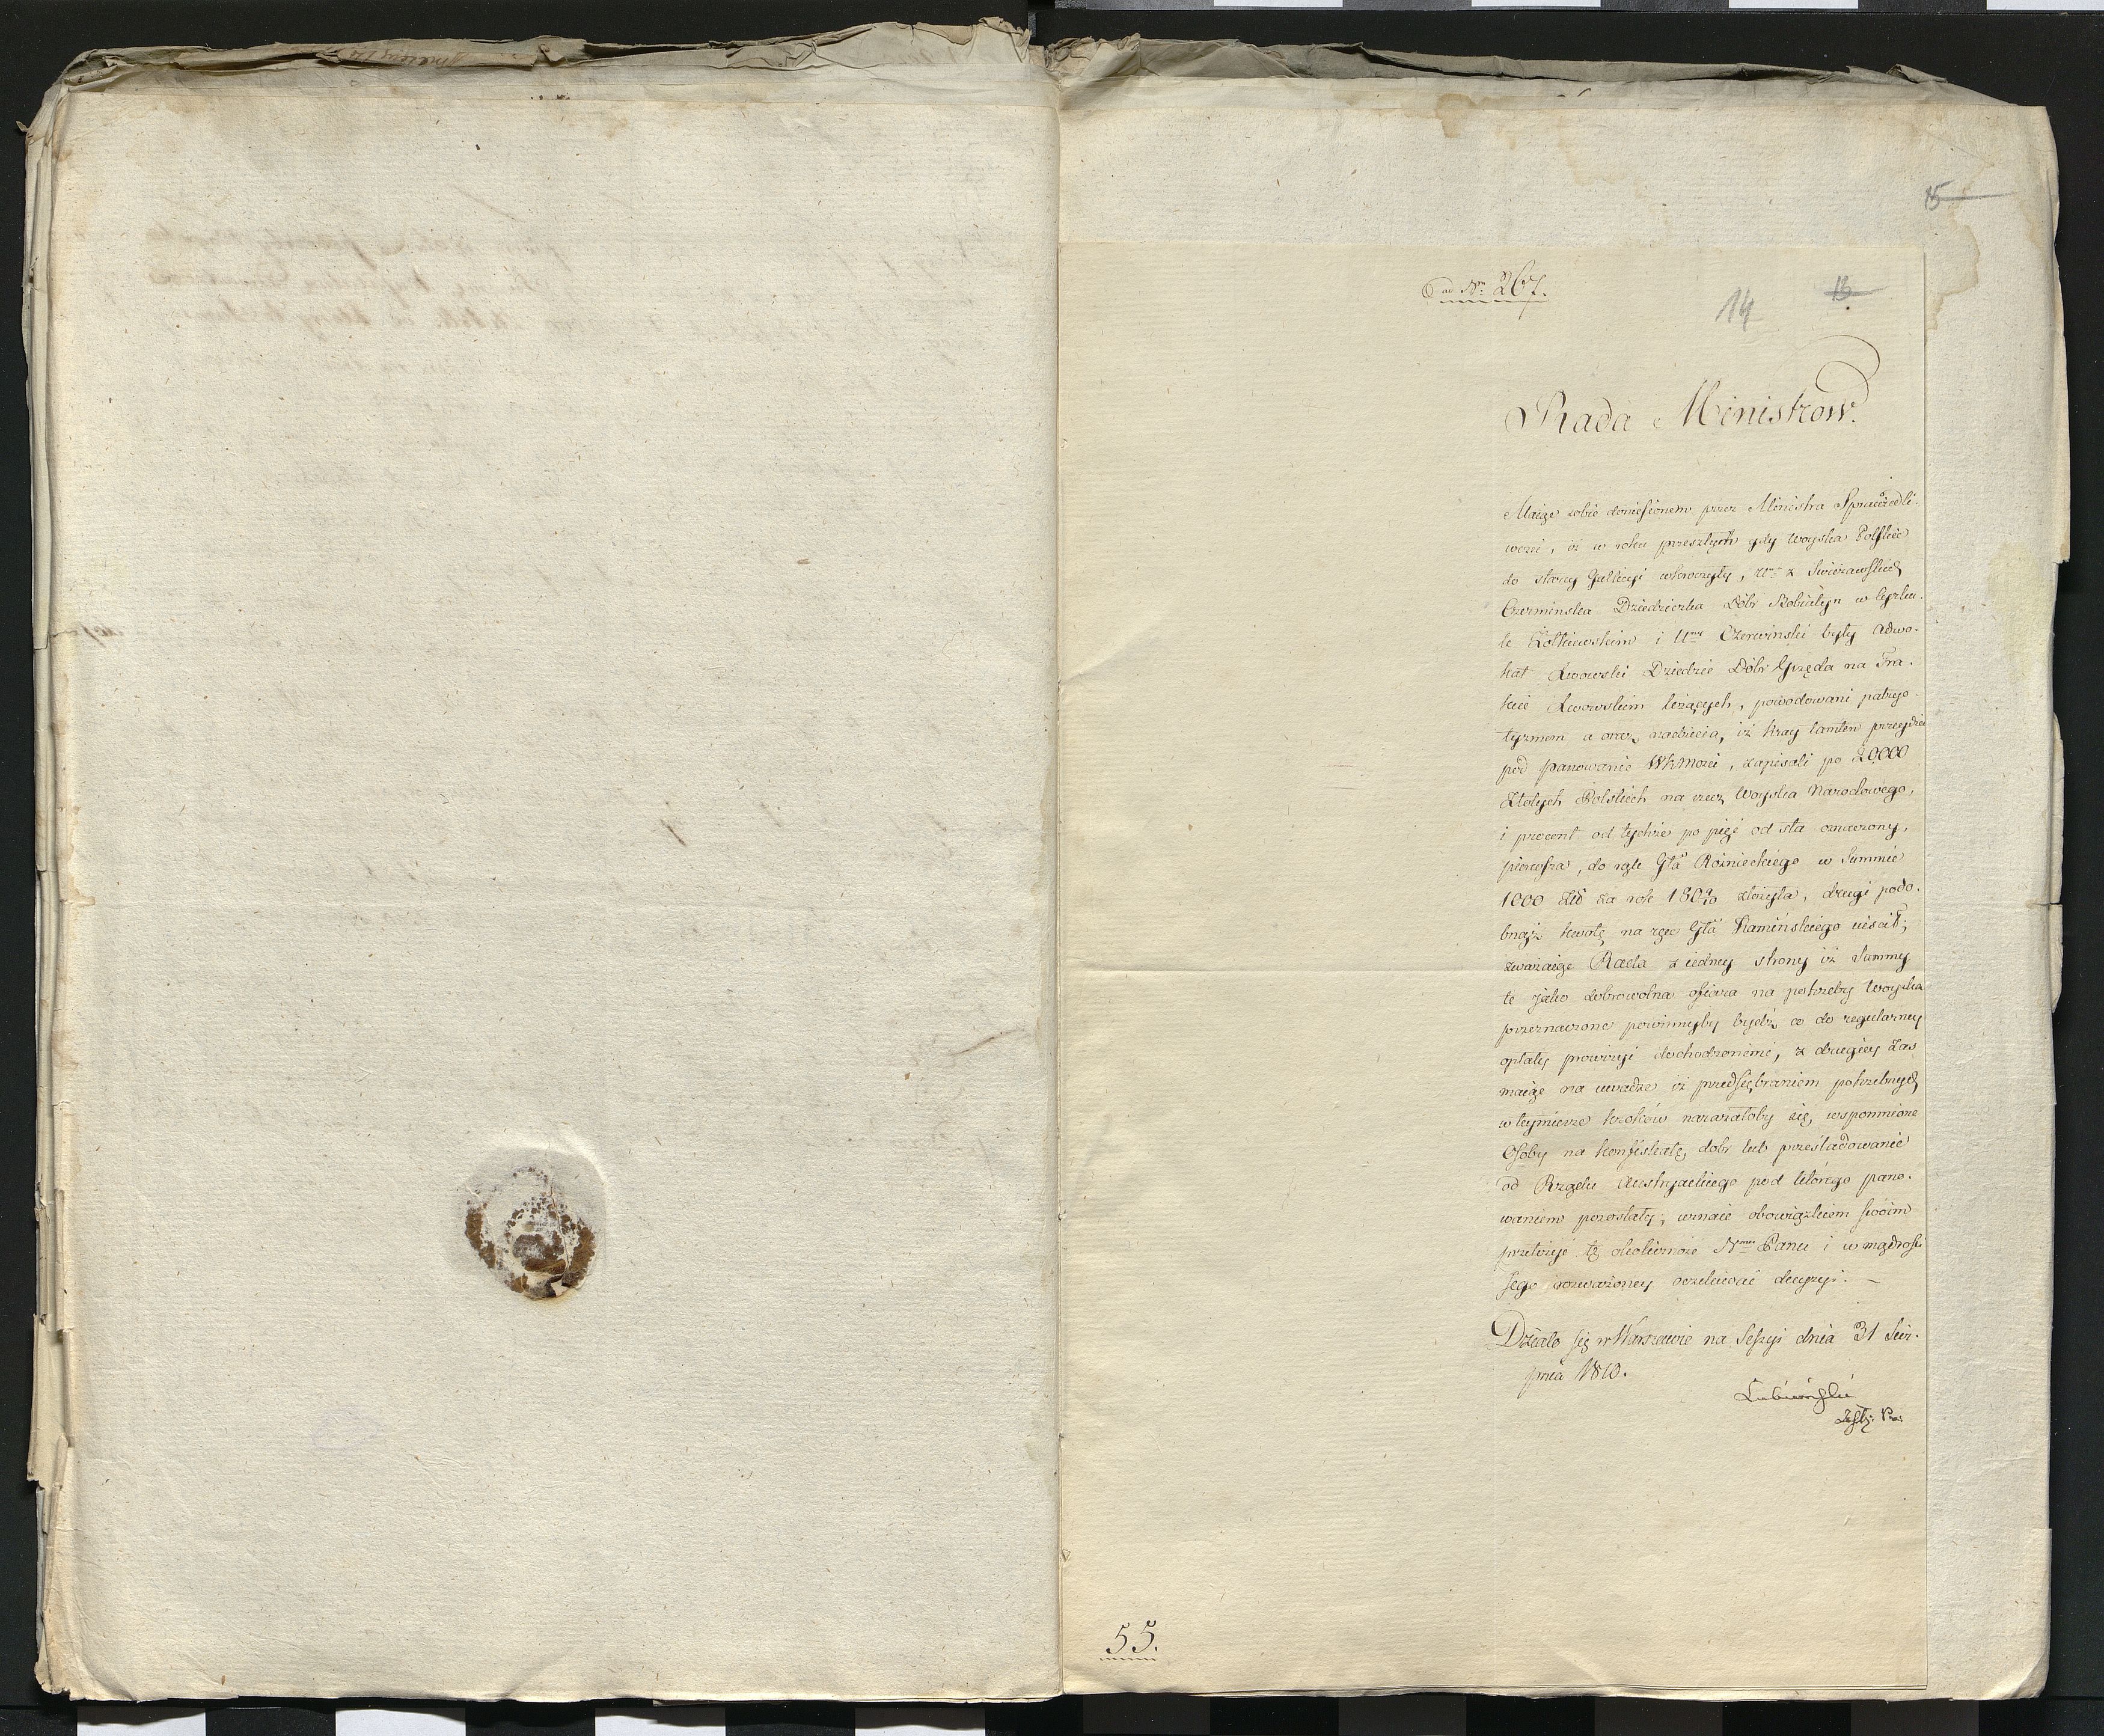 15
ad Nrm 267.
14
15
Rada Ministrow.
Maiąc sobie doniesionem przez Ministra Sprawiedli-
wości, iż w roku przeszłym gdy woyska Polskie
do starey Gallicyi wkroczyły, Ur. z Swieżawskich
Czermińska Dziedziczka Dóbr w Cyrku-
le Żołkiewskim i Ur. Czerwiński były Adwo-
kat Lwowski Dziedzic Dóbr Grzęda na Tra-
kcie Lwowskim leżących, powodowani patryo-
tyzmem a oraz nadzieią, iż kray tamten przeydzie
pod panowanie WKMości, zapisali po 20,000
Złotych Polskich na rzecz Woyska Narodowego,
i procent od tychże po pięć od sta oznaczony,
pierwsza, do rąk Gła Rożnieckiego w Summie
1000 Złł za rok 1809/10 złożyła, drugi podo-
bnąż kwotę na ręce Gła Kamińskiego uiścił;
zważaiąc Rada z iedney strony iż Summy
te jako dobrowolna ofiara na potrzeby Woyska
przeznaczone powinnyby bydź co do regularney
opłaty prowizyi dochodzonemi, z drugiey zas
maiąc na uwadze iż przedsięwbraniem potrzebnych
w teymierze kroków narażałoby się, wspomnione
Osoby na konfiskatę dobr lub prześladowanie
od Rządu Austryackiego pod którego pano-
waniem pozostały; uznaie obowiązkiem swoim
przełożyć tę okoliczność Nmu Panu i w mądrości
Jego rozważoney oczekiwać decyzyi. —
Działo się w Warszawie na Sessyi dnia 31 Sier-
pnia 1810.
Łubieński
Zstę: Pre:
55.